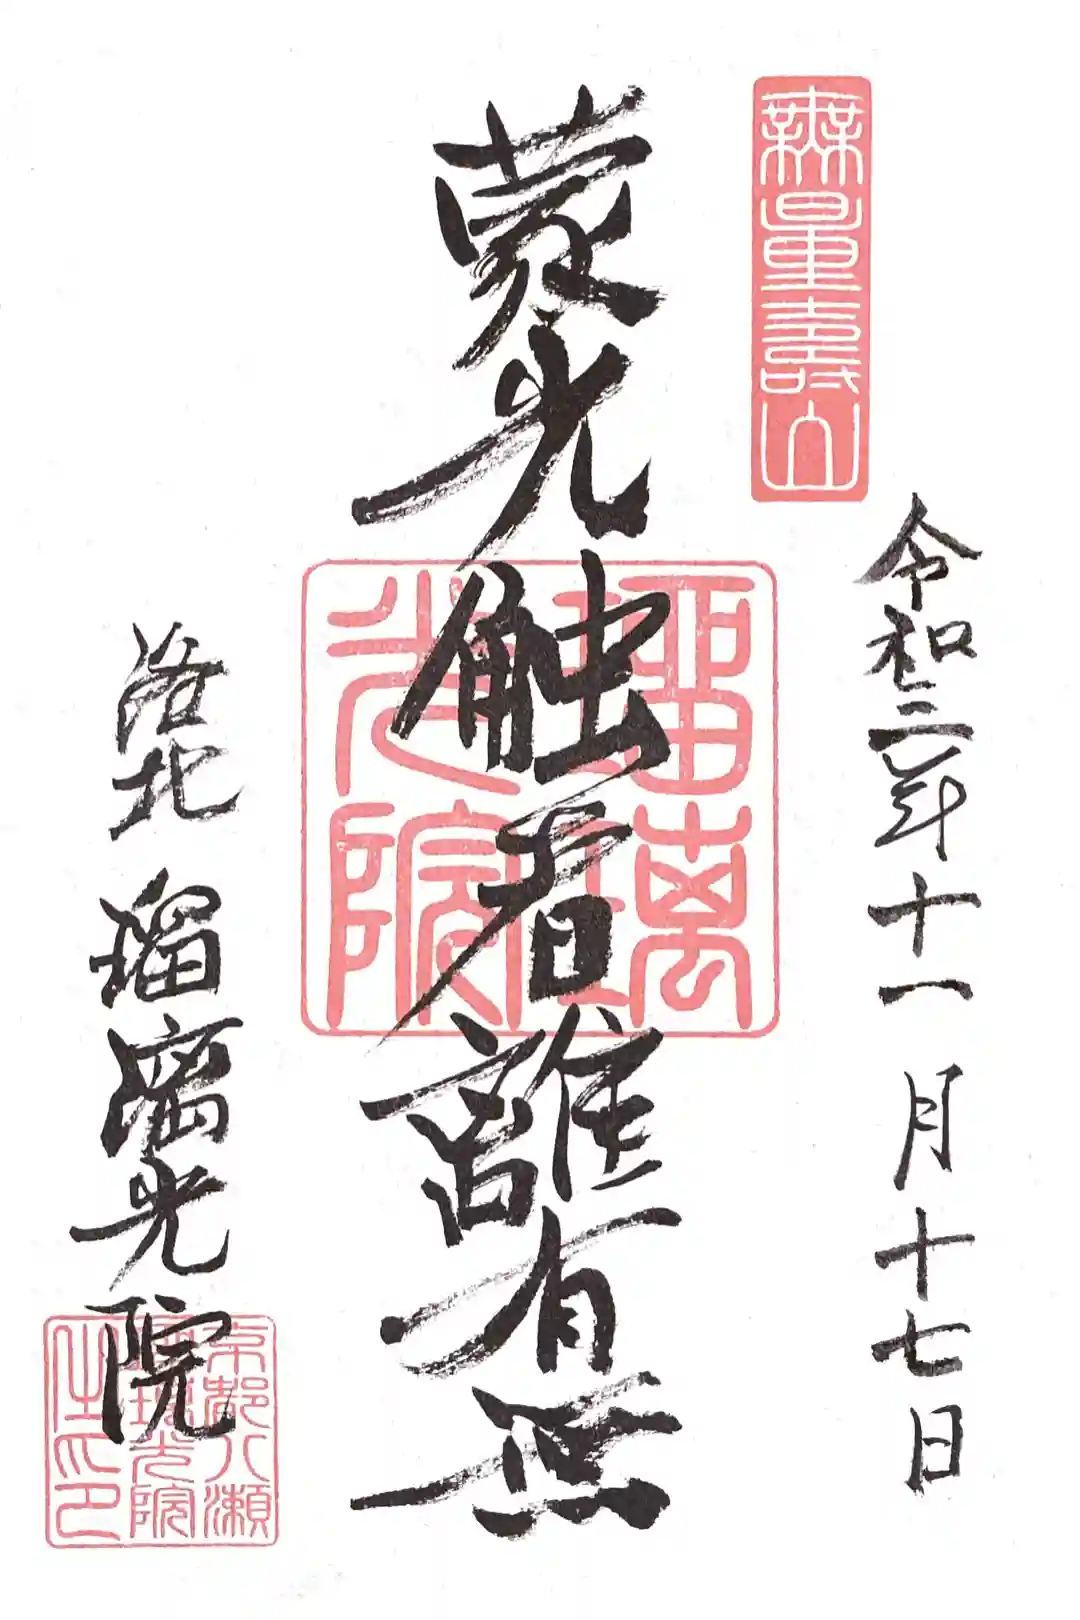 無量壽山
令和三年十一月十七日
蒙光触者離有無
瑠璃
光院
洛北 瑠璃光院
京都八瀬
瑠璃光院
之印